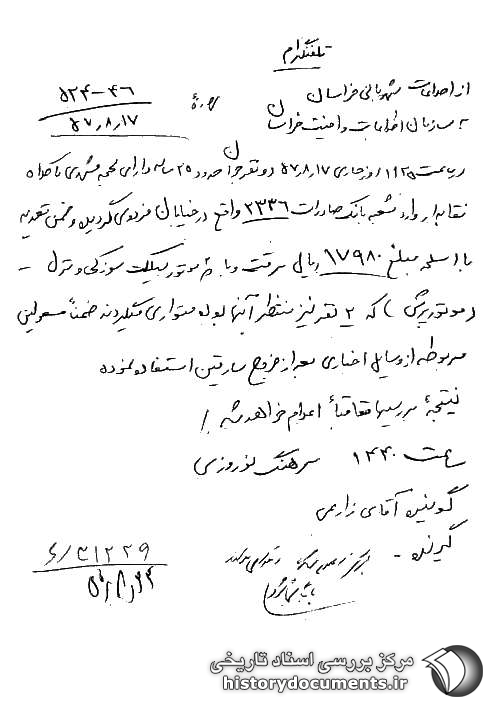 تلفنگرام
از اطلاعات شهربانی خراسان
به سازمان اطلاعات و امنیت خراسان
شماره ۴۶-۵۲۴
۵۷٫۸٫۱۷
ساعت ۱۱۲۵ روز جاری ۵۷٫۸٫۱۷ دو نفر جوان حدود ۲۵ ساله دارای لهجه مشهدی با کلاه
نقابدار وارد شعبه بانک صادرات ۲۳۳۶ واقع در خیابان فردوسی گردیده و ضمن تهدید
با اسلحه مبلغ ۱۷۹۸۰ ریال سرقت و با موتورسیکلت سوزوکی و ترل -
(موتور بزرگ) که ۲ نفر نیز منتظر آنها بوده متواری میگردند ضمناً مسئولین
مربوطه از وسایل اخباری بعد از خروج سارقین استفاده نموده
نتیجه بررسیها متعاقباً اعلام خواهد شد /
ساعت ۱۴۴۰ سرهنگ نوروزی
گوینده آقای زارعی
گیرنده -
۶/۳۱۲۲۹
مرکز بررسی اسناد تاریخی
historydocuments.ir